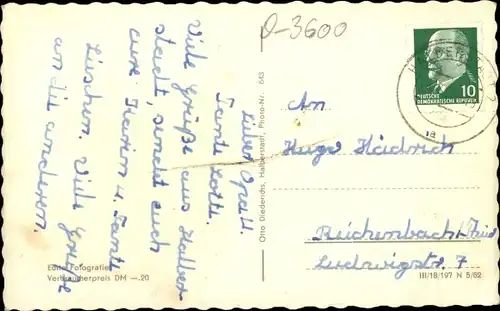 D-3600
Lieber Opa u.
Tante Lotte.
Viele Grüße aus Halber-
stadt, sendet euch
eure Karin u. Tante
Lieschen. Viele Grüße
an die anderen.
Echte Fotografie
Verbraucherpreis DM —.20
Otto Diederichs, Halberstadt, Photo-Nr. 643
DEUTSCHE
DEMOKRATISCHE REPUBLIK
10
An
Hugo Häidrich
Reichenbach
Ludwigstr. 7
III/18/197 N 5/62